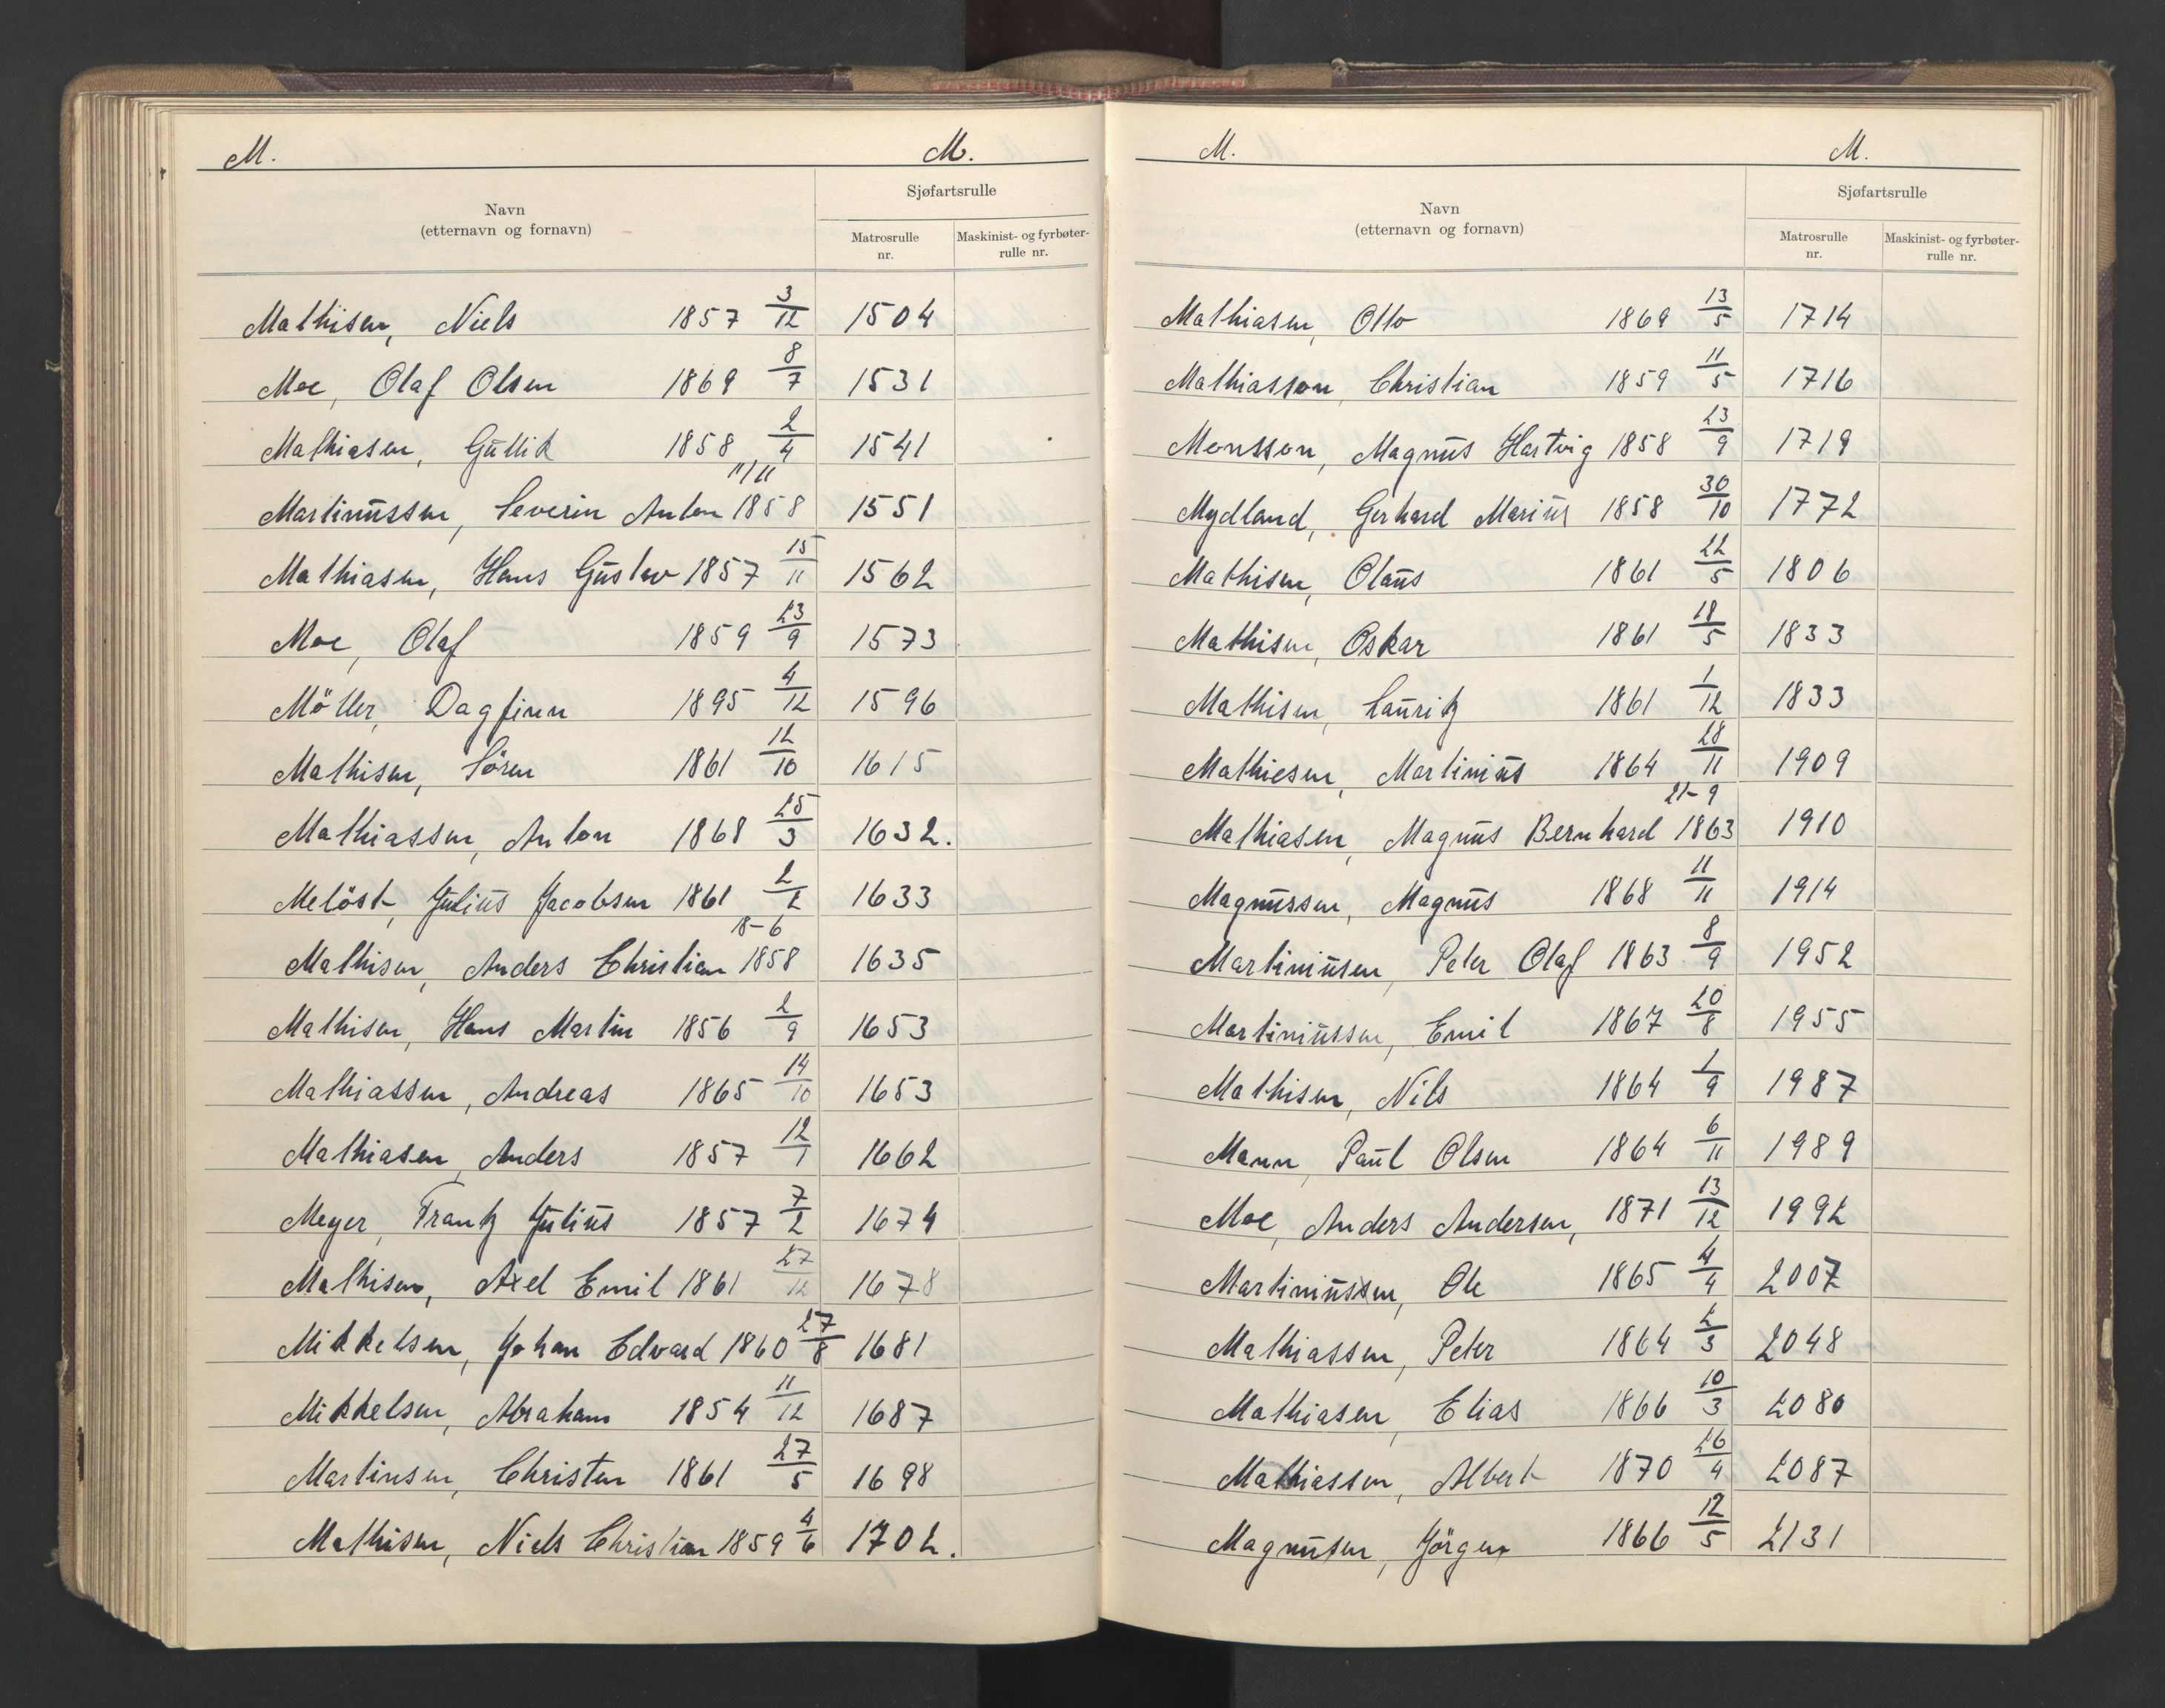 M. M.
Navn
(etternavn og fornavn)
Sjøfartsrulle
Matrosrulle nr.
Maskinist- og fyrbøter-rulle nr.
Mathisen, Niels 1857 3/12 1504
Moe, Olaf Olsen 1869 8/7 1531
Mathiasen, Gullik 1858 2/4 1541
Martinussen, Severin Anton 1858 11/11 1551
Mathiasen, Hans Gustav 1857 15/11 1562
Moe, Olaf 1859 23/9 1573
Möller, Dagfinn 1895 4/12 1596
Mathisen, Sören 1861 12/10 1615
Mathiassen, Anton 1868 25/3 1632.
Melöst, Julius Jacobsen 1861 2/2 1633
Mathisen, Anders Christian 1858 18-6 1635
Mathisen, Hans Martin 1856 2/9 1653
Mathiassen, Andreas 1865 14/10 1653
Mathiasen, Anders 1857 12/1 1662
Meyer, Frantz Julius 1857 7/2 1674
Mathisen, Axel Emil 1861 27/12 1678
Mikkelsen, Johan Edvard 1860 27/8 1681
Mikkelsen, Abraham 1854 11/12 1687
Martinsen, Christen 1861 27/5 1698
Mathisen, Niels Christian 1859 4/6 1702.
M. M.
Navn
(etternavn og fornavn)
Sjøfartsrulle
Matrosrulle nr.
Maskinist- og fyrbøter-rulle nr.
Mathiasen, Otto 1869 13/5 1714
Mathiasson, Christian 1859 11/5 1716
Monsson, Magnus Hartvig 1858 23/9 1719
Mydland, Gerhard Marius 1858 30/10 1772
Mathisen, Olaus 1861 22/5 1806
Mathisen, Oskar 1861 18/5 1833
Mathisen, Lauritz 1861 1/12 1833
Mathiesen, Martinius 1864 28/11 1909
Mathiasen, Magnus Bernhard 1863 21-9 1910
Magnussen, Magnus 1868 11/11 1914
Martiniusen, Peter Olaf 1863 8/9 1952
Martiniussen, Emil 1867 20/8 1955
Mathisen, Nils 1864 1/9 1987
Mann, Paul Olsen 1864 6/11 1989
Moe, Anders Andersen, 1871 13/12 1992
Martiniussen, Ole 1865 4/4 2007
Mathiassen, Peter 1864 2/3 2048
Mathiasen, Elias 1866 10/3 2080
Mathiassen, Albert 1870 26/4 2087
Magnusen, Jörgen 1866 12/5 2131